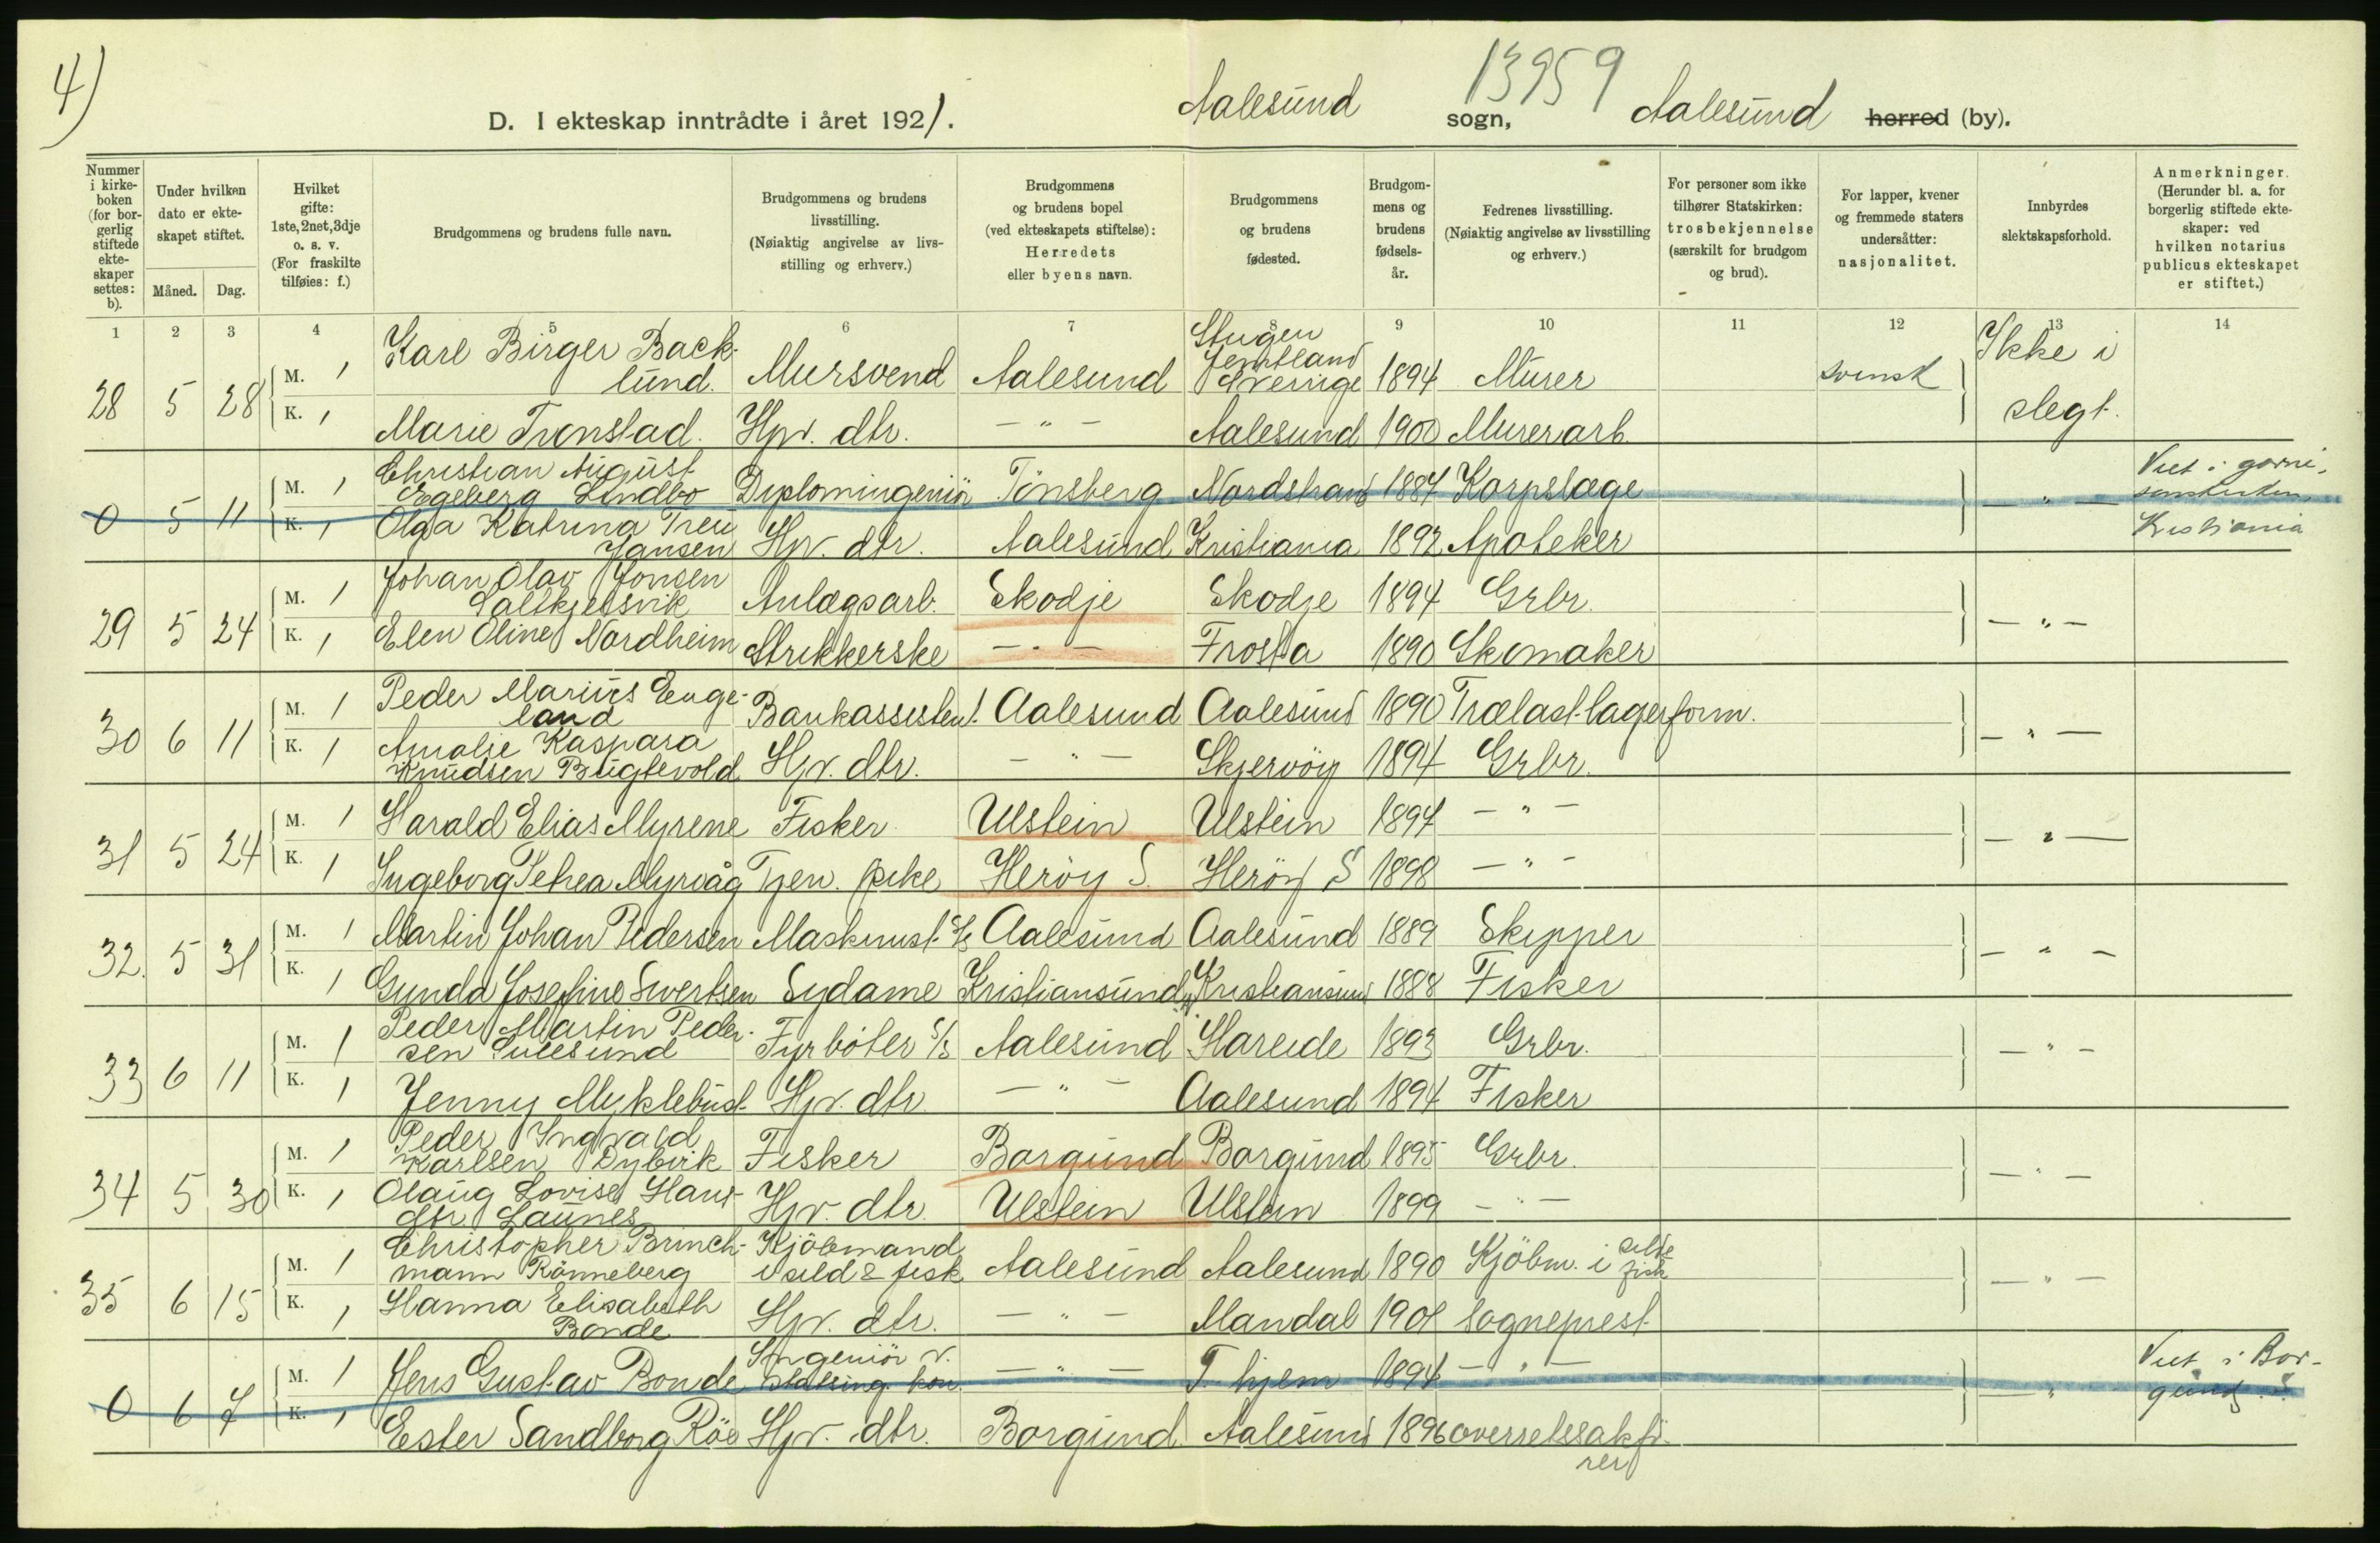 4)
13959
D. I ekteskap inntrådte i året 1921. Aalesund sogn, Aalesund herred (by).
Nummer i kirkeboken (for borgerlig stiftede ekteskaper settes: b).
Under hvilken dato er ekteskapet stiftet.
Måned. Dag.
Hvilket gifte: 1ste, 2net, 3dje o. s. v. (For fraskilte tilføies: f.)
Brudgommens og brudens fulle navn.
Brudgommens og brudens livsstilling. (Nøiaktig angivelse av livsstilling og erhverv.)
Brudgommens og brudens bopel (ved ekteskapets stiftelse): Herredets eller byens navn.
Brudgommens og brudens fødested.
Brudgommens og brudens fødselsår.
Fedrenes livsstilling. (Nøiaktig angivelse av livsstilling og erhverv.)
For personer som ikke tilhører Statskirken: trosbekjennelse (særskilt for brudgom og brud).
For lapper, kvener og fremmede staters undersåtter: nasjonalitet.
Innbyrdes slektskapsforhold.
Anmerkninger. (Herunder bl. a. for borgerlig stiftede ekteskaper: ved hvilken notarius publicus ekteskapet er stiftet.)
1 2 3 4 5 6 7 8 9 10 11 12 13 14
28 5 28 M. 1 Karl Birger Backlund. Mursvend Aalesund Stugen Jemtland Sverrige 1894 Murer svensk Ikke i slegt.
K. 1 Marie Tronstad. Hpv. dtr. — " — Aalesund 1900 Murerarb.
0 5 11 M. 1 Christian August Egeberg Lindbo Diplomingeniör Tönsberg Nordstrand 1884 Korpslæge — " — Viet i garnisonskirken Kristiania
K. 1 Olga Katrina Treu Jansen Hpv. dtr. Aalesund Kristiania 1892 Apoteker
29 5 24 M. 1 Johan Olav Jonsen Saltkjelsvik Anlægsarb. Skodje Skodje 1894 Grbr. — " —
K. 1 Elen Oline Nordheim Strikkerske — " — Frosta 1890 Skomaker
30 6 11 M. 1 Peder Marius Engeland Bankassistent. Aalesund Aalesund 1890 Trælast-lagerform. — " —
K. 1 Amalie Kaspara Knudsen Bugtevold Hpv. dtr. — " — Skjervöy 1894 Grbr.
31 5 24 M. 1 Harald Elias Myrene Fisker Ulstein Ulstein 1894 — " — — " —
K. 1 Ingeborg Pehea Myrvåg Tjen. pike Heröy S. Heröy S 1898 — " —
32. 5 31 M. 1 Martin Johan Pedersen Maskinist S/S Aalesund Aalesund 1889 Skipper — " —
K. 1 Gunda Josefine Sivertsen Sydame Kristiansund N Kristiansund 1888 Fisker
33 6 11 M. 1 Peder Martin Pedersen Sulesund Fyrböter S/S Aalesund Hareide 1893 Grbr. — " —
K. 1 Jenny Myklebust Hpv. dtr — " — Aalesund 1894 Fisker
34 5 30 M. 1 Peder Ingvald Karlsen Dybvik Fisker Borgund Borgund 1895 Grbr. — " —
K. 1 Olaug Lovise Hansdtr Saunes Hpv. dtr. Ulstein Ulstein 1899 — " —
35 6 15 M. 1 Christopher Brinchmann Rönneberg Kjöbmand i sild & fisk Aalesund Aalesund 1890 Kjöbm. i sild & fisk — " —
K. 1 Hanna Elisabeth Bonde Hpv. dtr. — " — Mandal 1901 Sogneprest
0 6 7 M. 1 Jens Gustav Bonde Ingeniör v. kon. — " — T.hjem 1894 — " — — " — Viet i Borgund. S.
K. 1 Ester Sandborg Röe Hpv. dtr. Borgund Aalesund 1896 overretssakförer